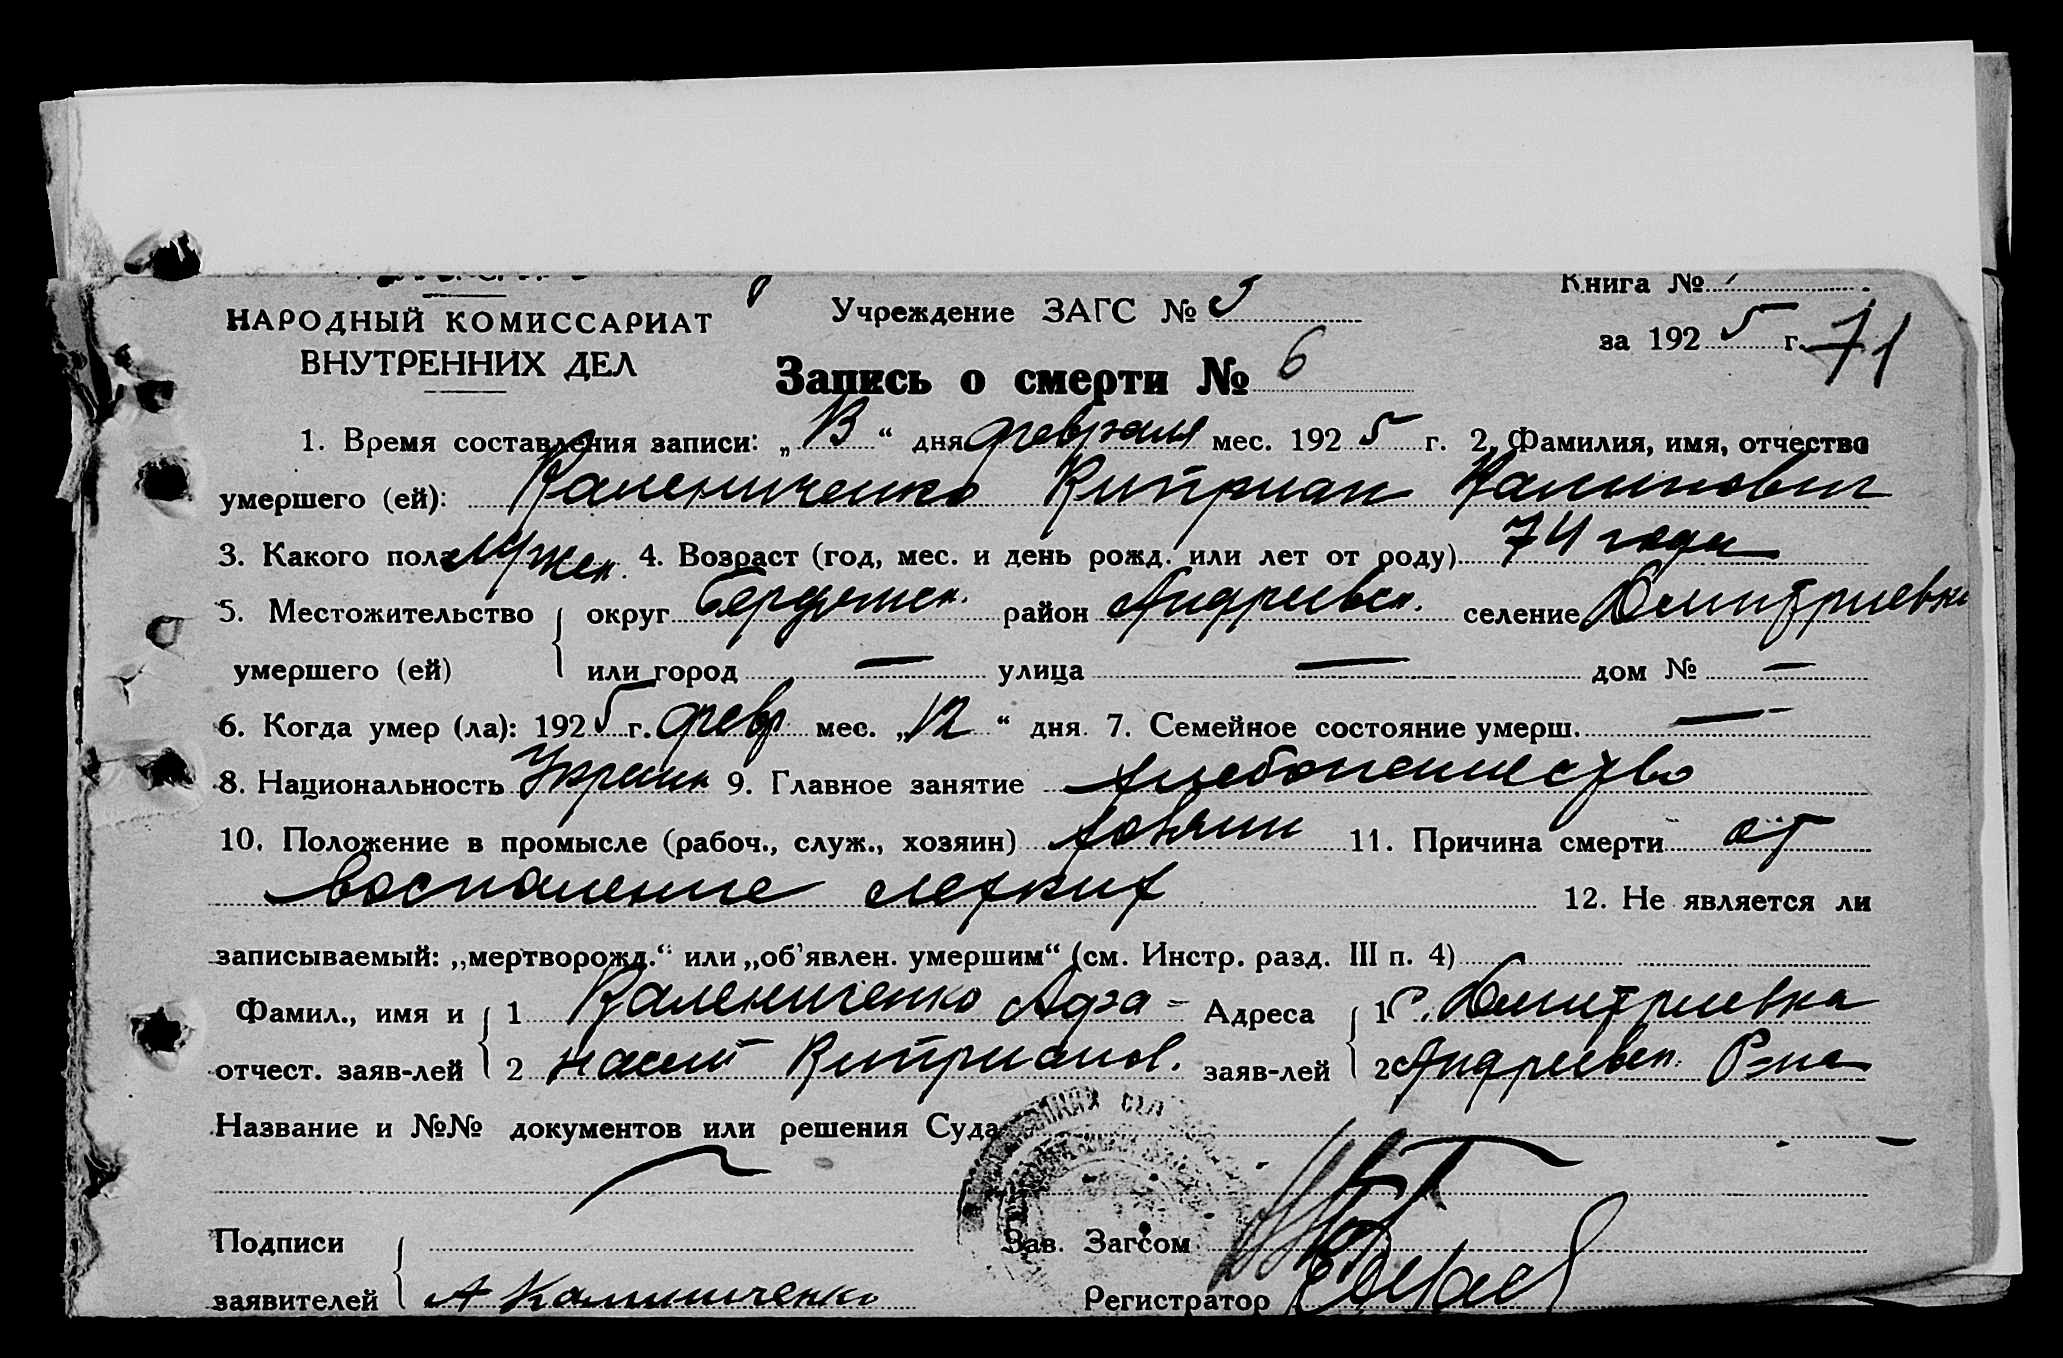 Книга №
НАРОДНЫЙ КОМИССАРИАТ
ВНУТРЕННИХ ДЕЛ
Учреждение ЗАГС № 3
за 1925 г. 71
Запись о смерти № 6
1. Время составления записи: „13“ дня февраля мес. 1925 г. 2. Фамилия, имя, отчество
умершего (ей): Калениченко Киприан Калинович
3. Какого пола Мужск. 4. Возраст (год, мес. и день рожд. или лет от роду) 74 года
5. Местожительство округ Бердянск. район Андреевск. селение Дмитриевка
умершего (ей) или город — улица — дом № —
6. Когда умер (ла): 1925 г. февр мес. „12“ дня. 7. Семейное состояние умерш. —
8. Национальность Украин 9. Главное занятие хлебопашество
10. Положение в промысле (рабоч., служ., хозяин) хозяин 11. Причина смерти от
воспаление легких 12. Не является ли
записываемый: „мертворожд.“ или „об’явлен. умершим“ (см. Инстр. разд. III п. 4)
Фамил., имя и 1 Калениченко Афа- Адреса 1 с. Дмитриевка
отчест. заяв-лей 2 насий Киприанов. заяв-лей 2 Андреевск. Р-на
Название и №№ документов или решения Суда —
Подписи Зав. Загсом
заявителей А Калениченко Регистратор